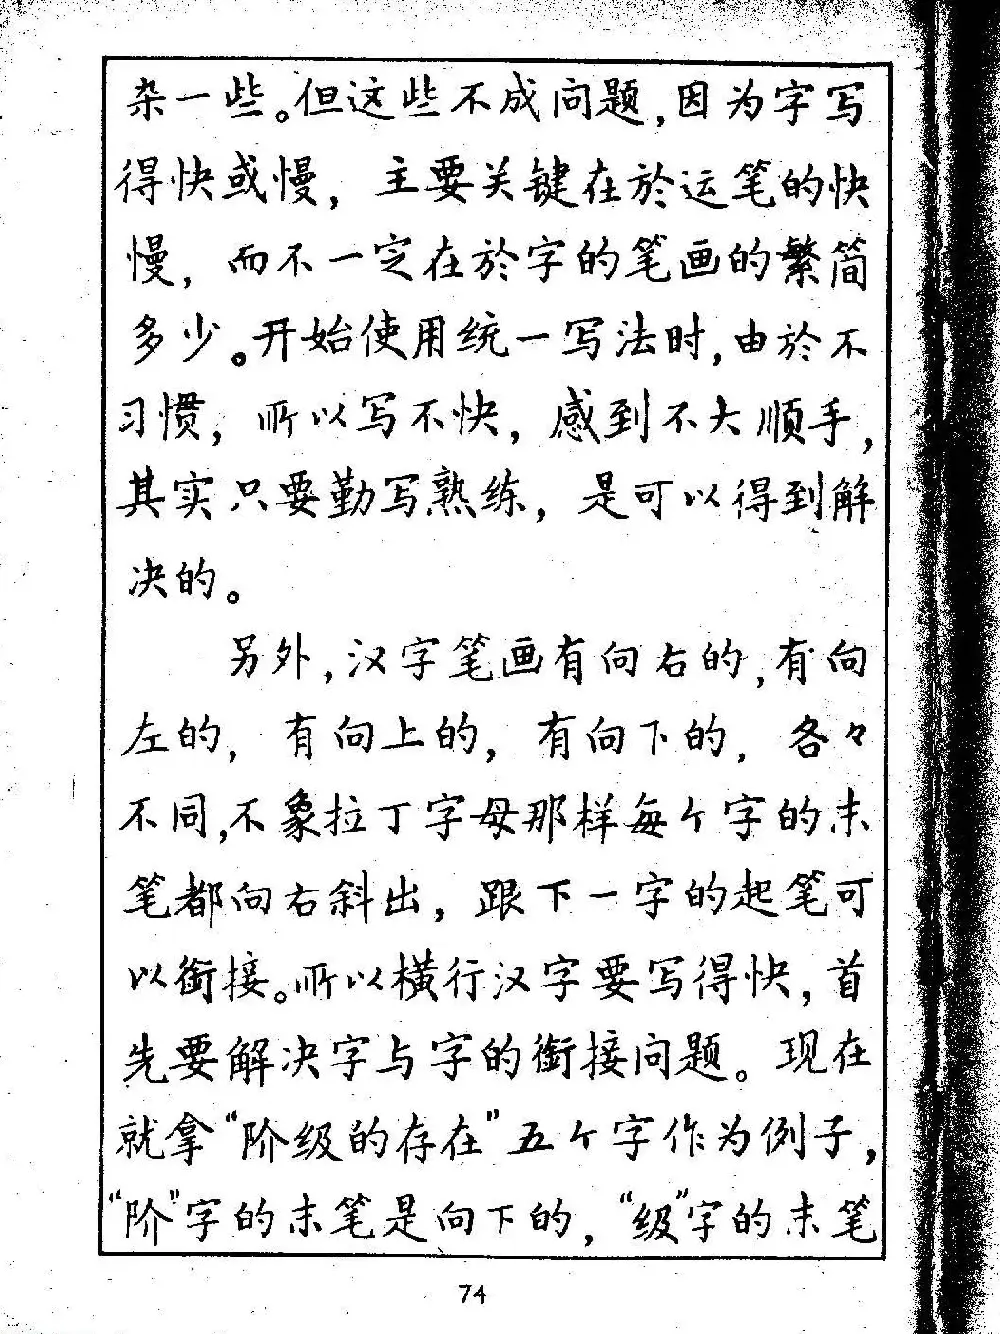 杂一些。但这些不成问题，因为字写
得快或慢，主要关键在於运笔的快
慢，而不一定在於字的笔画的繁简
多少。开始使用统一写法时，由於不
习惯，所以写不快，感到不大顺手，
其实只要勤写熟练，是可以得到解
决的。
另外，汉字笔画有向右的，有向
左的，有向上的，有向下的，各々
不同，不象拉丁字母那样每个字的末
笔都向右斜出，跟下一字的起笔可
以衔接。所以横行汉字要写得快，首
先要解决字与字的衔接问题。现在
就拿“阶级的存在”五个字作为例子，
“阶”字的末笔是向下的，“级”字的末笔
74